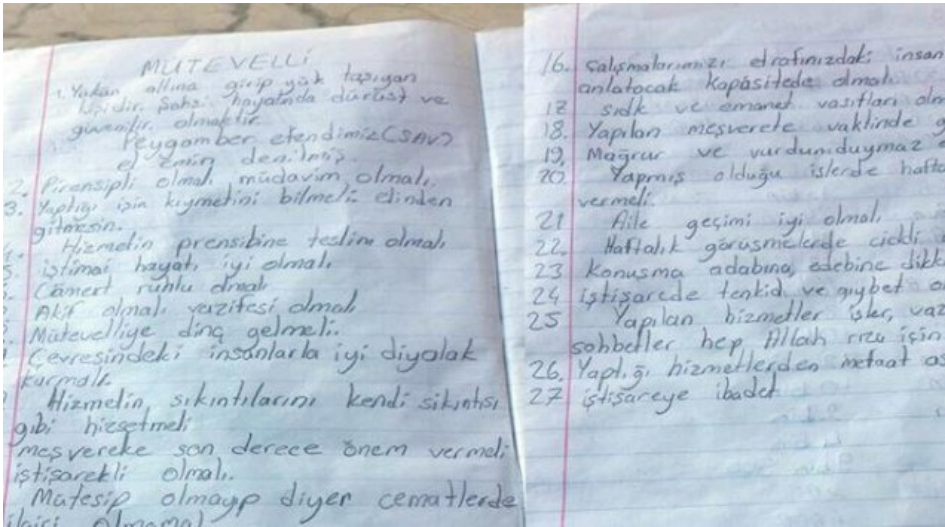 MÜTEVELLİ
1. Yükün altına girip yük taşıyan
kişidir. Şahsi hayatında dürüst ve
güvenilir olmaktır.
Peygamber efendimiz (SAV)
el Emin denilmiş.
2. Pirensipli olmalı müdavim olmalı.
3. Yaptığı işin kıymetini bilmeli elinden
gitmesin.
4. Hizmetin prensibine teslim olmalı
5. iştimai hayatı iyi olmalı
Cömert ruhlu olmalı
Aktif olmalı vazifesi olmalı
Mütevelliye dinç gelmeli.
Çevresindeki insanlarla iyi diyalak
kurmalı.
Hizmetin sıkıntılarını kendi sıkıntısı
gibi hissetmeli
meşvereke son derece önem vermeli
iştişarekli olmalı.
Matesip olmayıp diyer cematlerde
ilgici olmamal
16. çalışmalarımızı etrafınızdaki insan
anlatacak kapasitede olmalı
17 sıdk ve emanet vasıfları olm
18. Yapılan meşverete vaktinde g
19. Mağrur ve vurdumduymaz
20. Yapmış olduğu işlerde hatta
vermeli.
21 Aile geçimi iyi olmalı
22. Haftalık görüşmelerde ciddi
23 Konuşma adabına, edebine dikk
24 iştişarede tenkid ve gıybet o
25 Yapılan hizmetler işler, vaz
sohbetler hep Allah rızu için
26. Yaptığı hizmetlerden metaat as
27 iştişareye ibadet